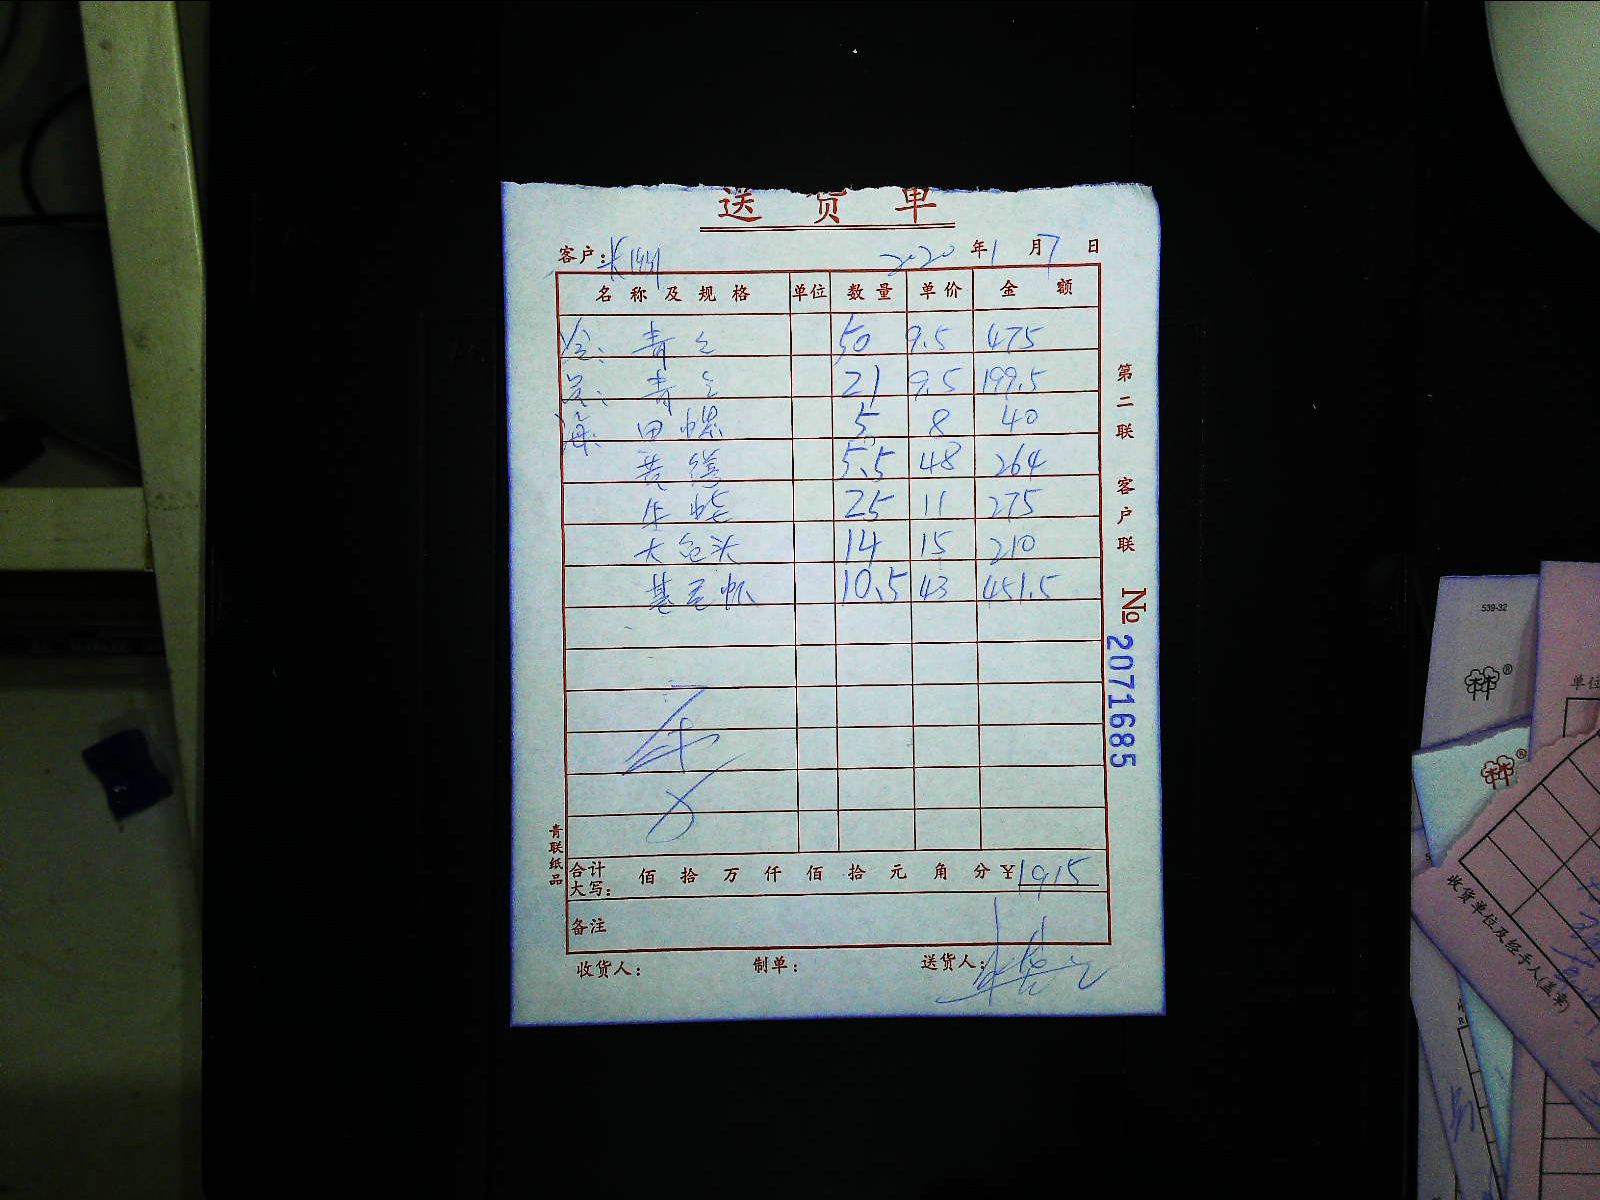 送货单
客户: 2020年1月7日
名称及规格 单位 数量 单价 金额
青 50 9.5 475
青 21 9.5 199.5
海: 田螺 5 8 40
5.5 48 264
牛蛙 25 11 275
大包头 14 15 210
基尾虾 10.5 43 451.5
合计大写: 佰 拾 万 仟 佰 拾 元 角 分 ¥1915
备注
收货人: 制单: 送货人:
第二联 客户联
№ 2071685
青联纸品
539-32
林®
林®
单位
收货单位及经手人(盖章)